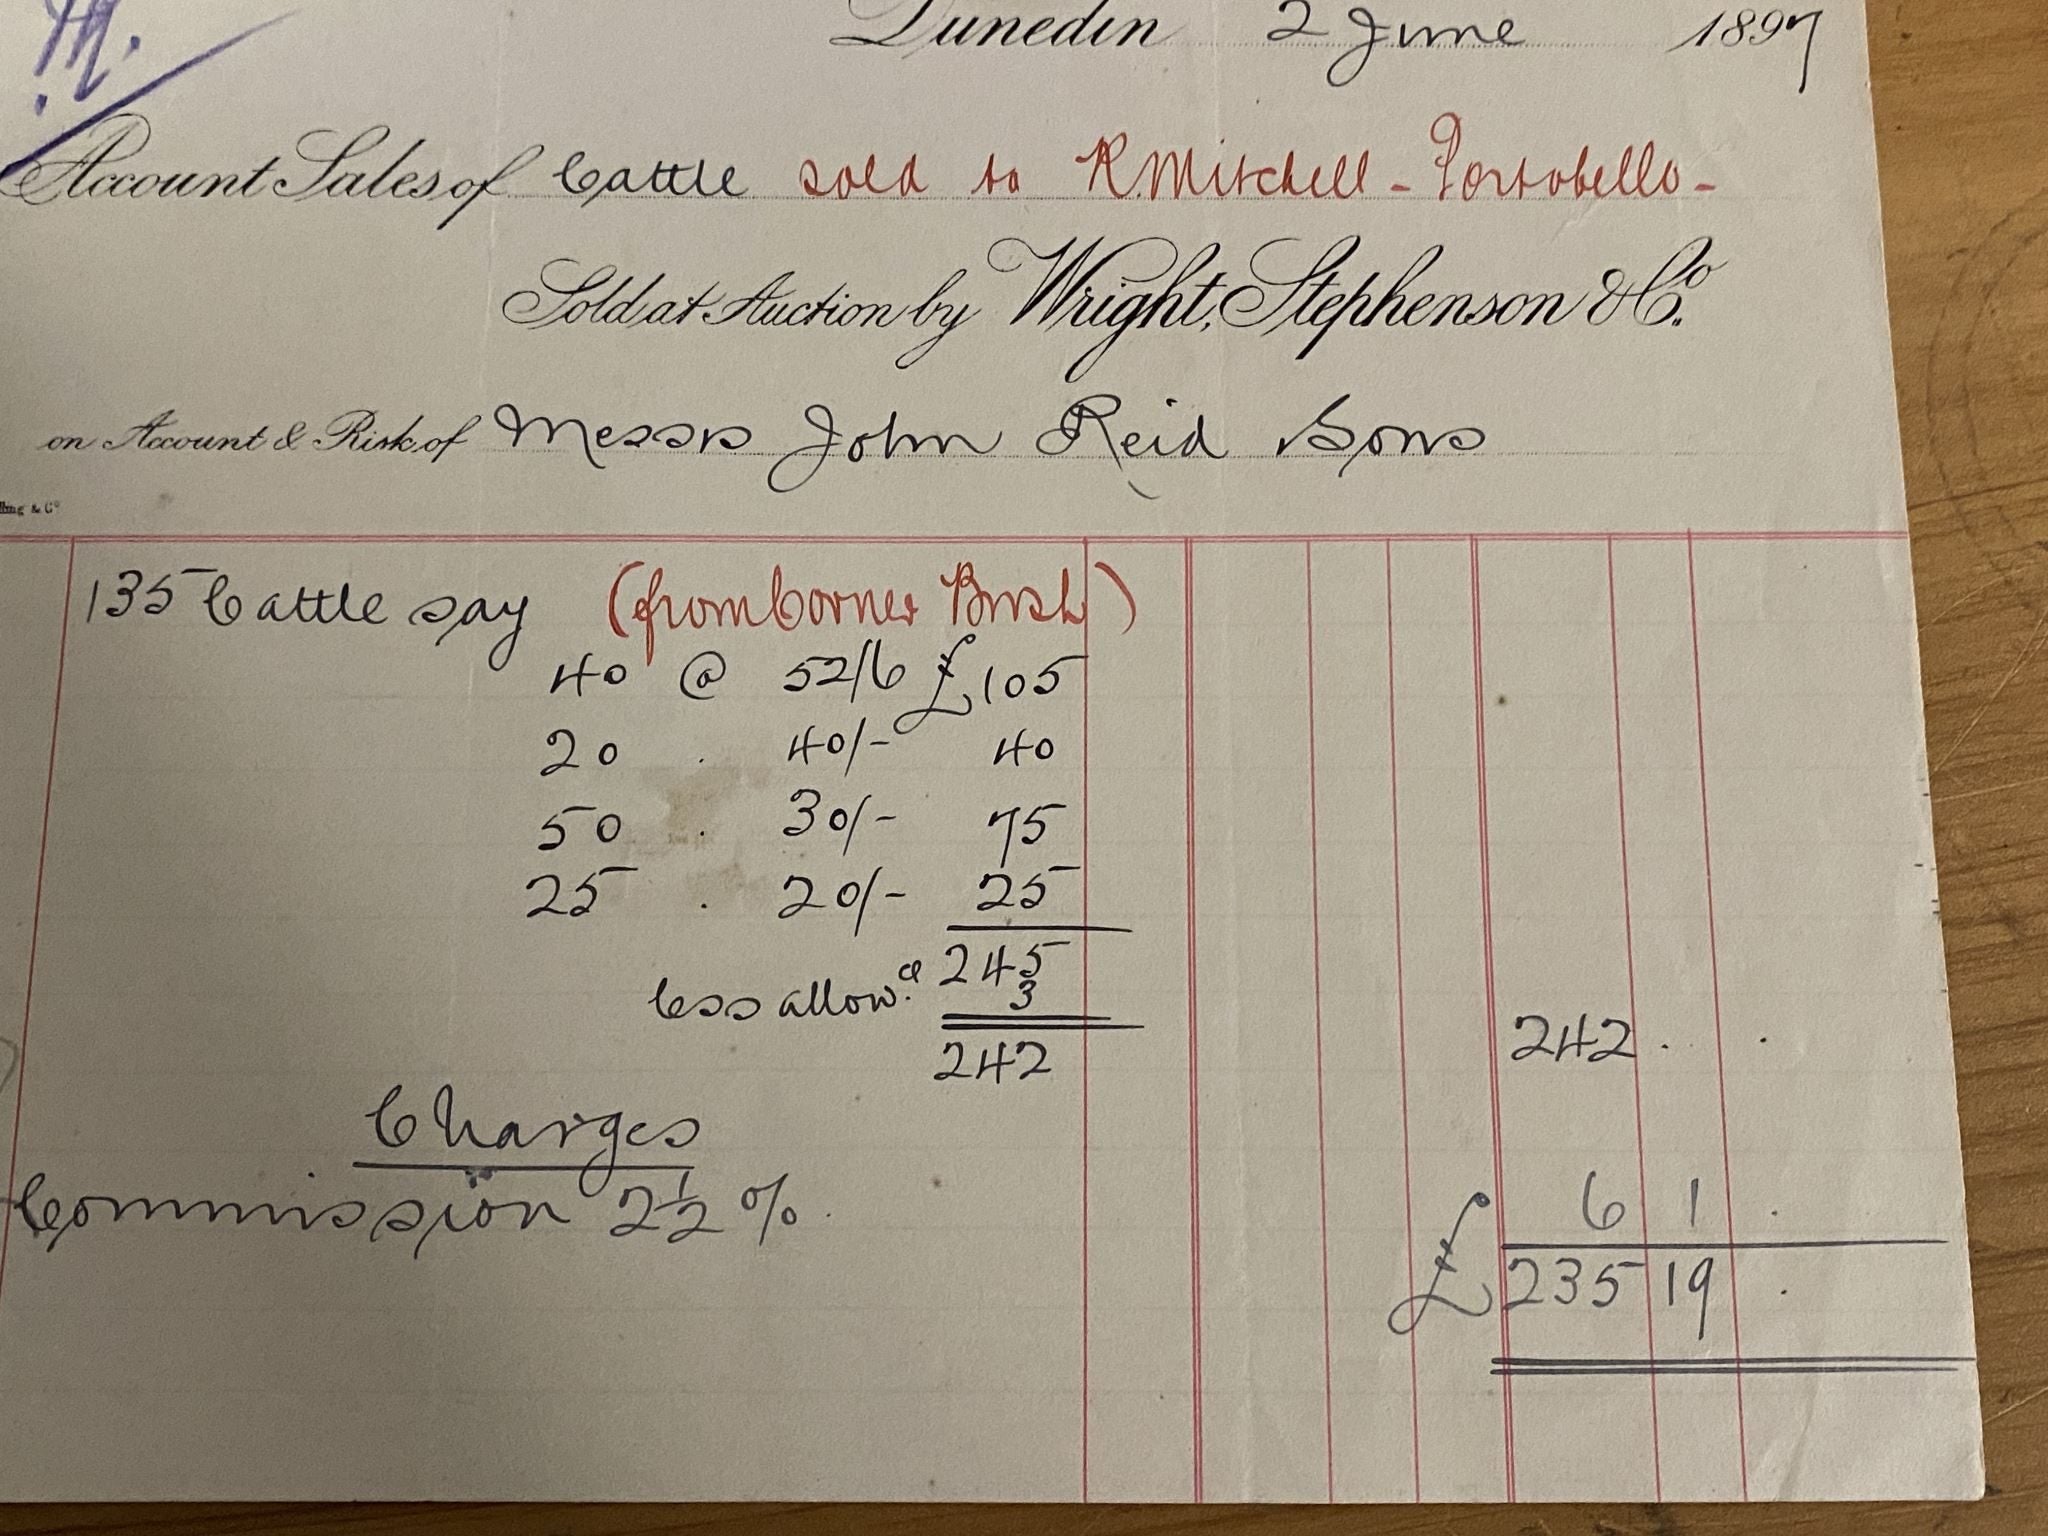 Dunedin 2 June 1897
Account Sales of Cattle sold to R. Mitchell - Portobello -
Sold at Auction by Wright, Stephenson & Co.
on Account & Risk of Messrs John Reid Sons
& Co
135 Cattle say (from Corner Bush)
40 @ 52/6 £105
20 . 40/- 40
50 . 30/- 75
25 . 20/- 25
245
less allowce 3
242 242 . .
Charges
Commission 2½ % . 6 1 .
£ 235 19 .